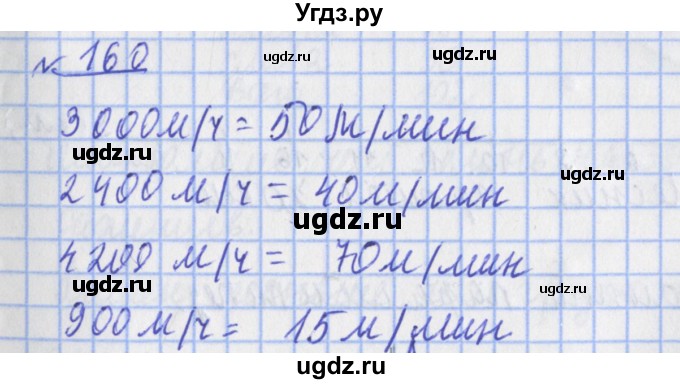 Угдз.ру
№ 160
ugdz.ru
ugdz.ru
3000м/ч = 50м/мин
ugdz.ru
2400м/ч = 40м/мин
ugdz.ru
ugdz.ru
4200 м/ч = 70м/мин
ugdz.ru
ugdz.ru
900м/ч = 15м/мин
ugdz.ru